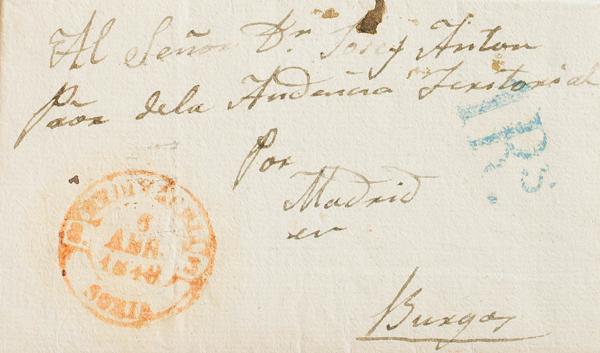 Al Señor Dn Josef Anton
Pror dela Audencia Territorial
Por
Madrid
en
Burgos
1Rs.
6
ABR
1846
SORIA